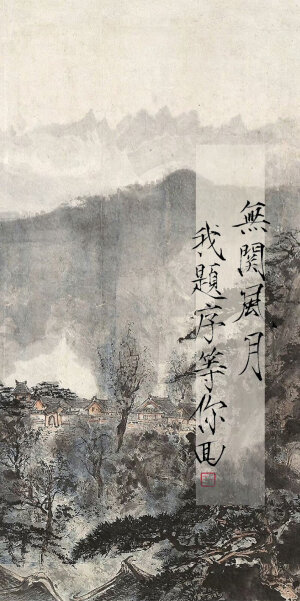 無關風月
我題序等你回